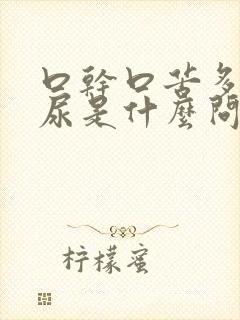 口幹口苦多
尿是什麼問
柠檬蜜